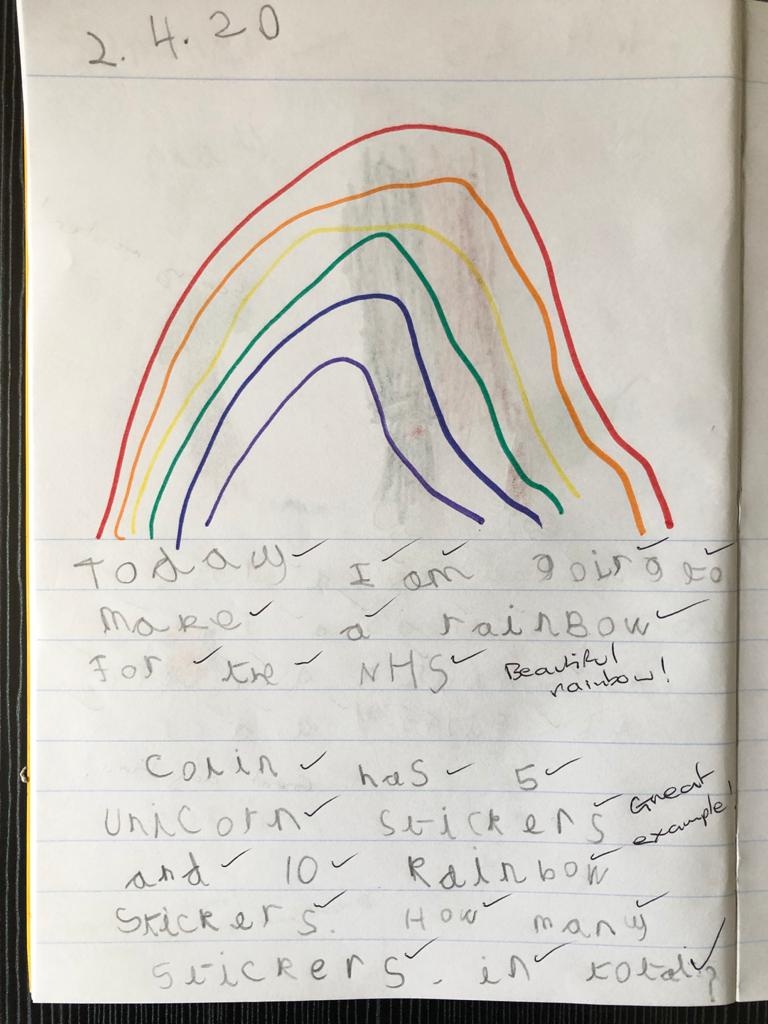 2.4.20
Today I am going to
make a rainBow
For the NHS
Beautiful
rainbow!
Colin has 5
UniCorn stickers
Great
example!
and 10 Rainbow
Stickers. How many
stickers. in total?